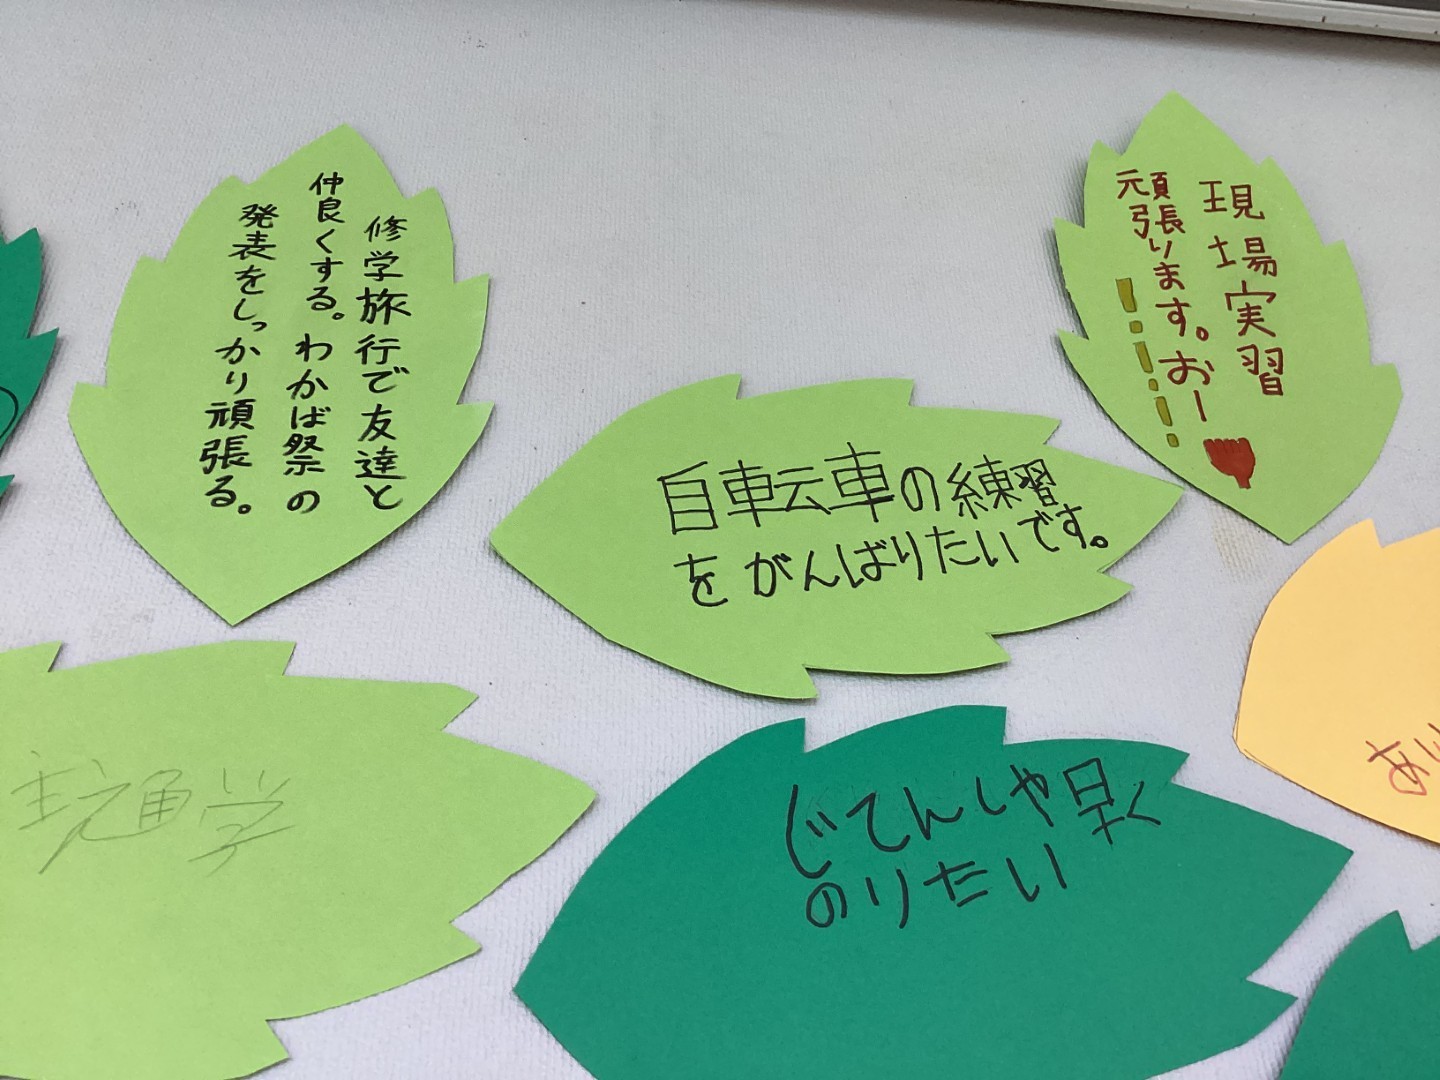 修学旅行で友達と
仲良くする。わかば祭の
発表をしっかり頑張る。
現場実習
頑張ります。おー
!!!
自転車の練習
をがんばりたいです。
じてんしゃ早く
のりたい
通学
あり